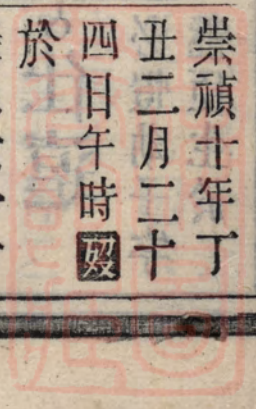 崇禎十年丁
丑二月二十
四日午時歿
於